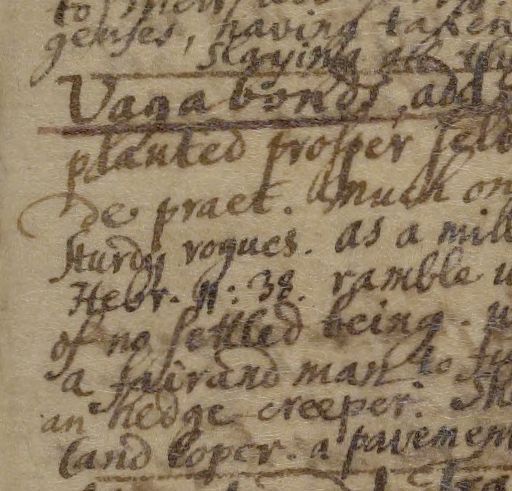 genses, having taken
slaying all the
Vagabonds, adds
planted prosper seld
de praet. much on
sturdy rogues. as a mill
Hebr. 11: 38. ramble u
of no settled being.
a fairand man to
an hedge creeper.
land loper. a pavemen